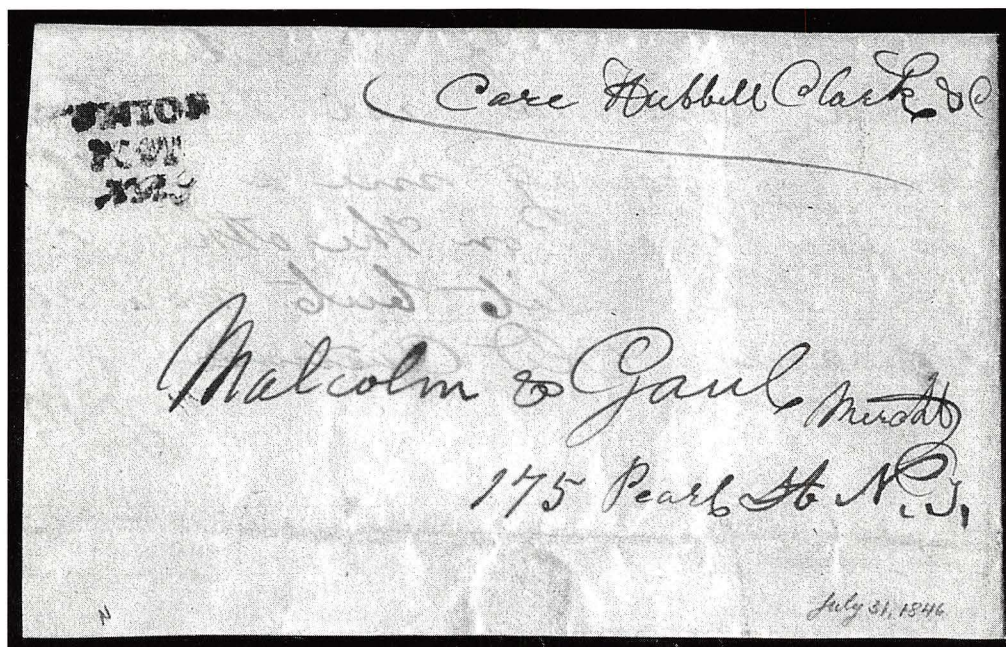 Care Hubbell Clark & Co
UNION
POST
Malcolm & Gaul Merchts
175 Pearl St N.Y.
July 31, 1846
N